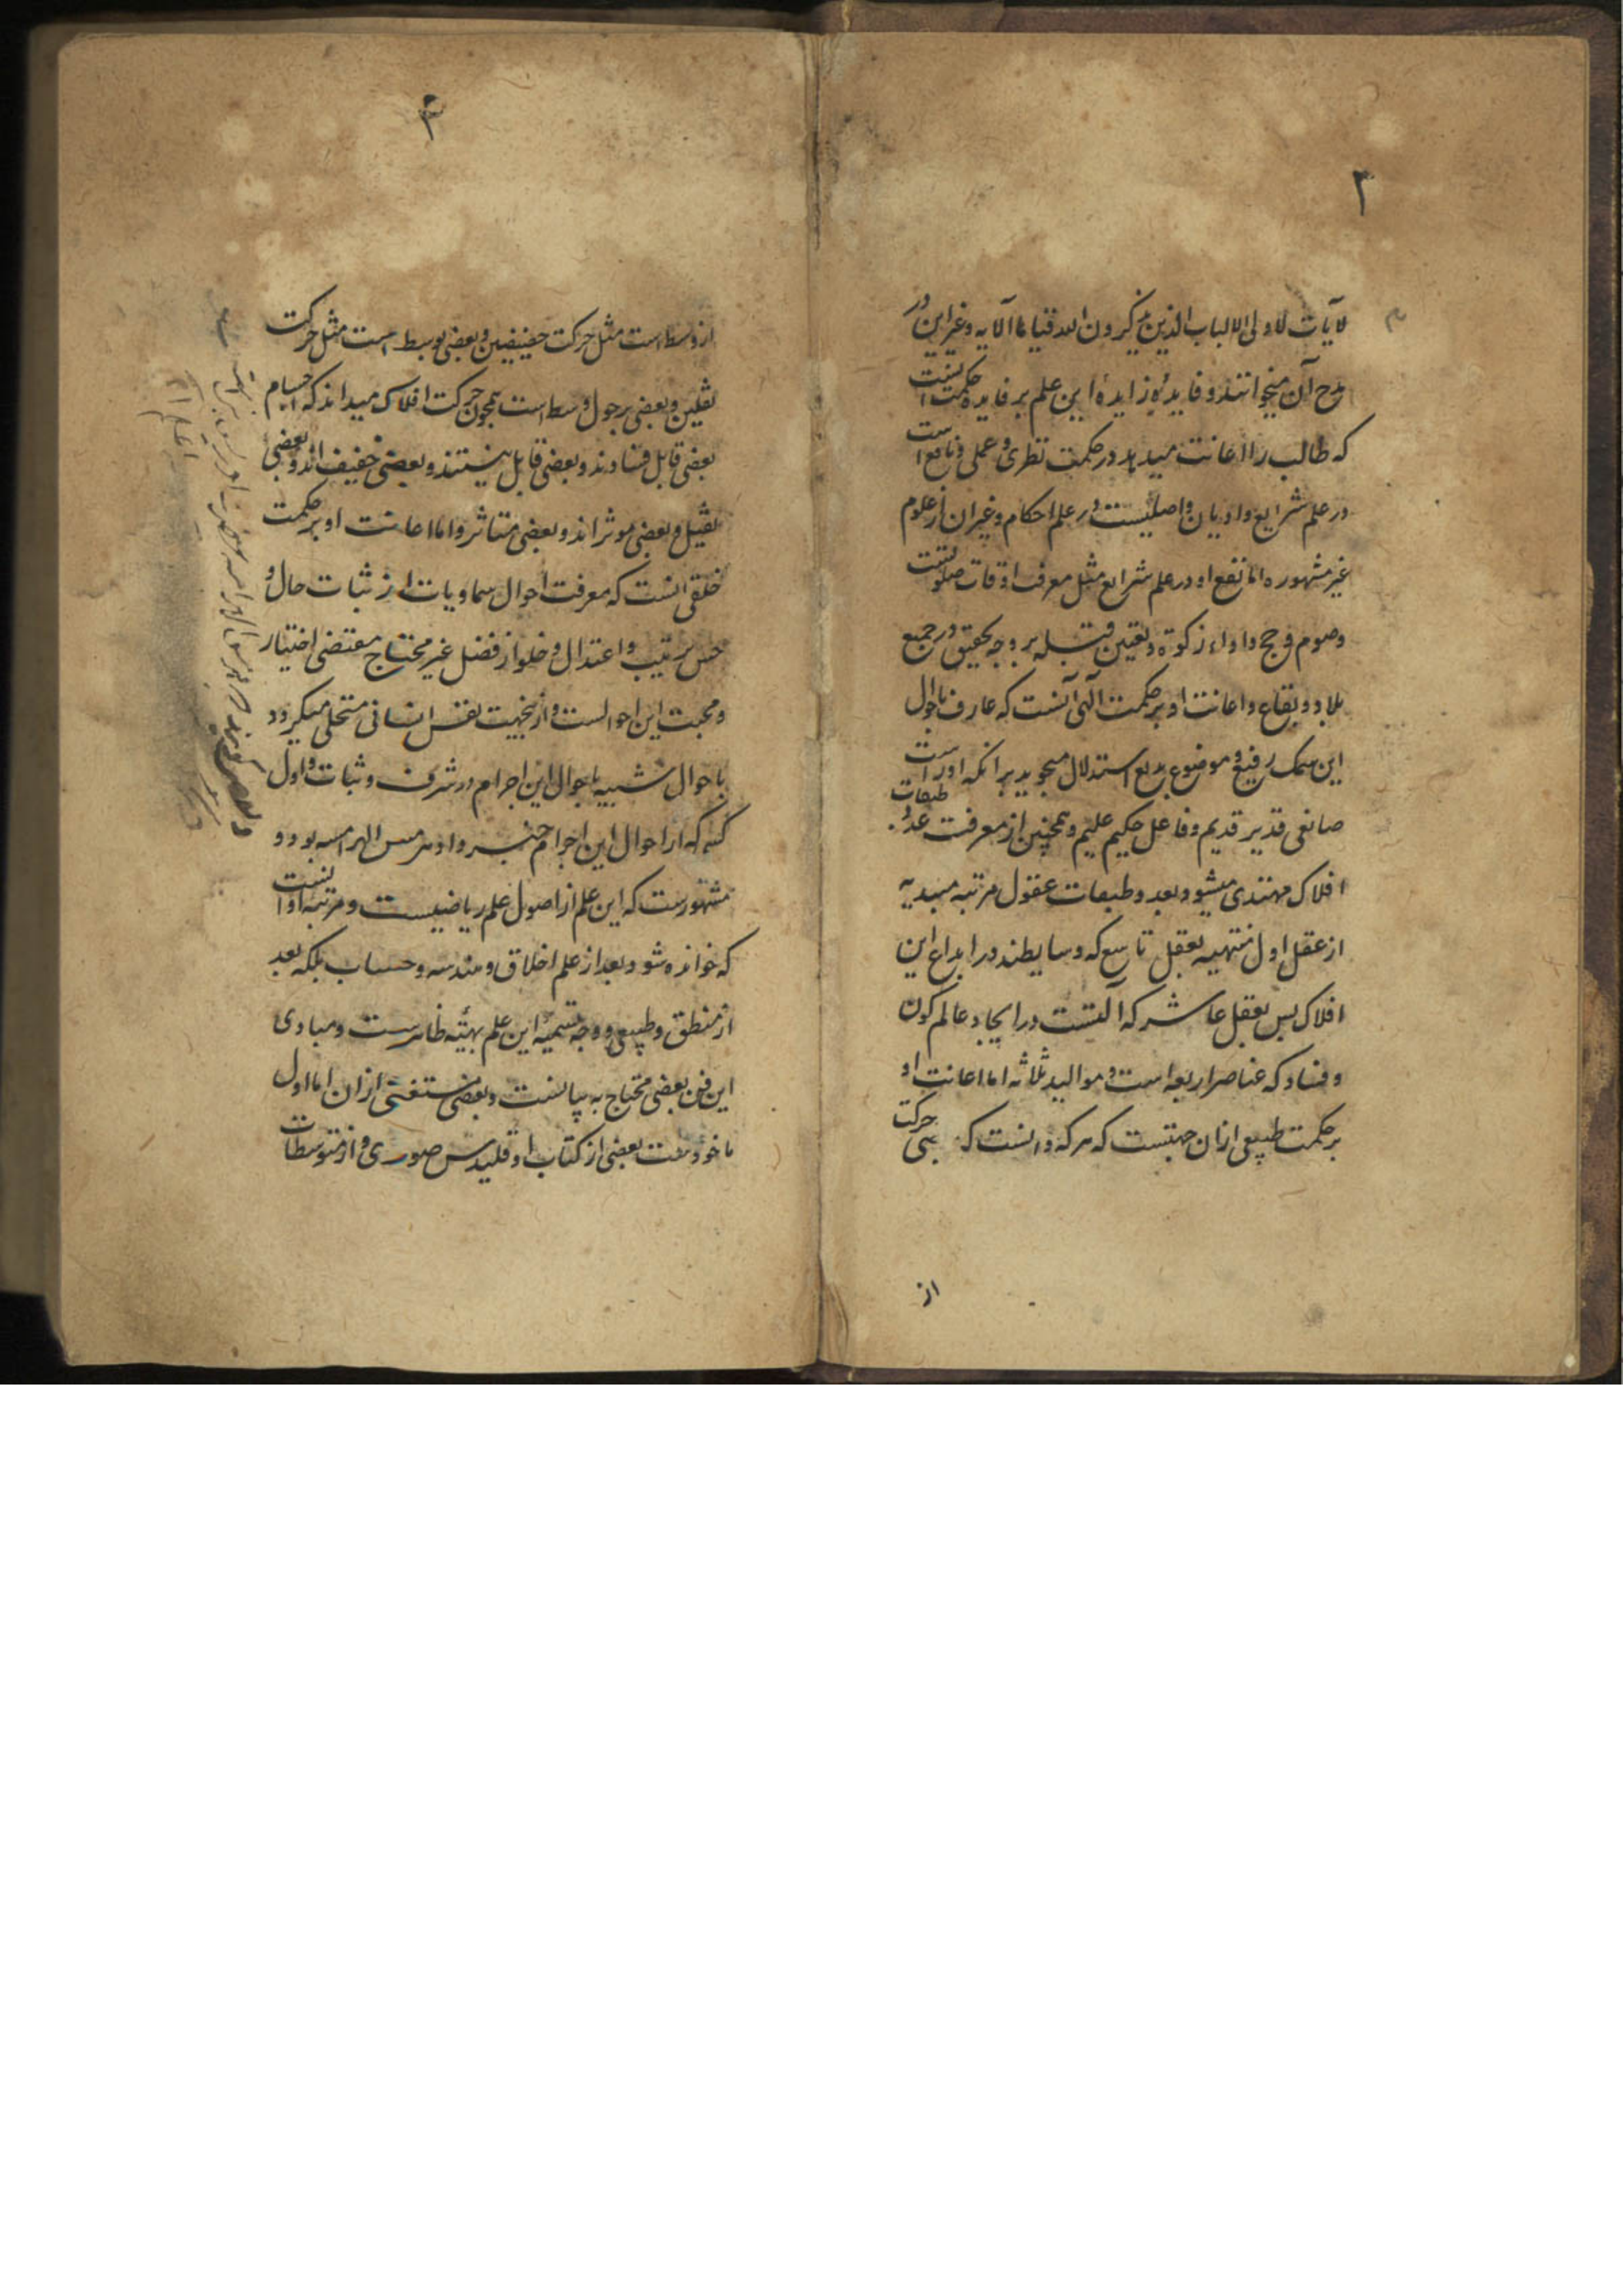 ۲
لآیات لاولی الالباب الذین یذکرون الله قیاما الآیه وغیر این در
مدح آن میخوانند و فایدۀ زایدۀ این علم بر فایدۀ حکمت آنست
که طالب را اعانت میدهد در حکمت نظری و عملی و نافع است
در علم شرایع و ادیان و اصلیست در علم احکام و غیر ان از علوم
غیر مشهوره اما نفع او در علم شرایع مثل معرفت اوقات صلوتست
وصوم و حج و اداء زکوة و تعیین قبله بر وجه تحقیق در جمیع
بلاد و بقاع و اعانت او بر حکمت الهی آنست که عارف باحوال
این سمک رفیع و موضوع بدیع استدلال میجوید بر انکه اوراست
صانعی قدیر قدیم و فاعل حکیم علیم و همچنین از معرفت عدد طبقات
افلاک مهتدی میشود بعدد طبقات عقول مرتبه مبدیه
از عقل اول منتهیه بعقل تاسع که وسایطند در ابداع این
افلاک بس بعقل عاشر که آلتست در ایجاد عالم کون
و فساد که عناصر اربعه است و موالید ثلاثه اما اعانت او
بر حکمت طبیعی ازان جهتست که هر که دانست که بعضی حرکت
از
۳
از وسط است مثل حرکت خفیفین و بعضی بوسط است مثل حرکت
ثقلین و بعضی بر حول وسط است همچون حرکت افلاک میداند که اجسام
بعضی قابل فسادند و بعضی قابل نیستند و بعضی خفیف اند و بعضی
ثقیل و بعضی موثر اند و بعضی متاثر واما اعانت او بر حکمت
خلقی انست که معرفت احوال سماویات از ثبات حال و
حسن ترتیب و اعتدال و خلو از فضل غیر محتاج مقتضی اختیار
و محبت این احوالست و ازینجهت نفس انسانی متحلی میکردد
باحوال شبیه باحوال این اجرام در شرف و ثبات و اول
کسی که از احوال این اجرام خبر داد هرمس الهرامسه بود و
مشهورست که این علم از اصول علم ریاضیست و مرتبه او انست
که خوانده شود بعد از علم اخلاق و هندسه و حساب بلکه بعد
از منطق و طبیعی و وجه تسمیۀ این علم بهیئه ظاهرست و مبادی
این فن بعضی محتاج به بیانست و بعضی مستغنی ازان اما اول
ماخوذست بعضی از کتاب اوقلیدس صوری و از متوسطات